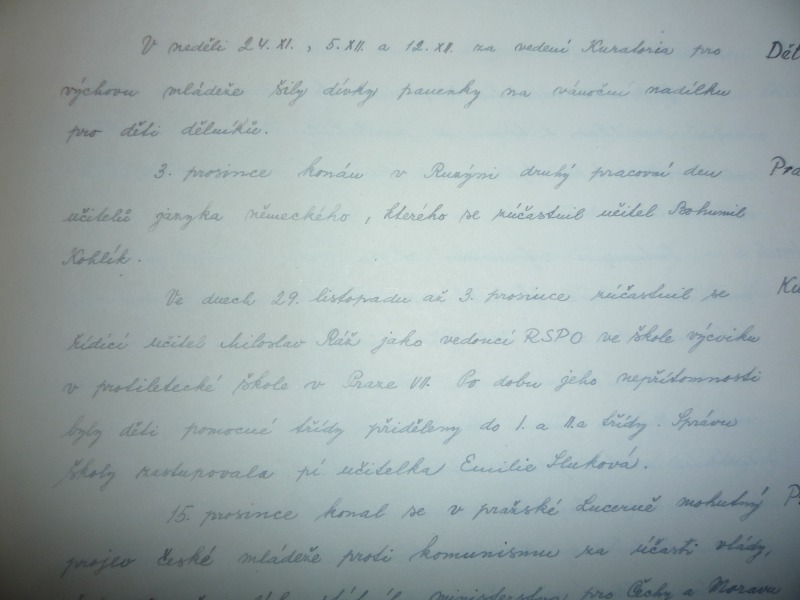 V neděli 24. XI., 5. XII. a 12. XII. za vedení Kuratoria pro
Děl
výchovu mládeže šily dívky panenky na vánoční nadílku
pro děti dělníků.
3. prosince konán v Ruzyni druhý pracovní den
Pra
učitelů jazyka německého, kterého se zúčastnil učitel Bohumil
Kohlík.
Ve dnech 29. listopadu až 3. prosince zúčastnil se
Ku
řídící učitel Miloslav Ráž jako vedoucí RSPO ve škole výcviku
v protiletecké škole v Praze VII. Po dobu jeho nepřítomnosti
byly děti pomocné třídy přiděleny do I. a II.a třídy. Správu
školy zastupovala pí učitelka Emilie Sluková.
15. prosince konal se v pražské Lucerně mohutný
projev české mládeže proti komunismu za účasti vlády,
ministerstva pro Čechy a Moravu